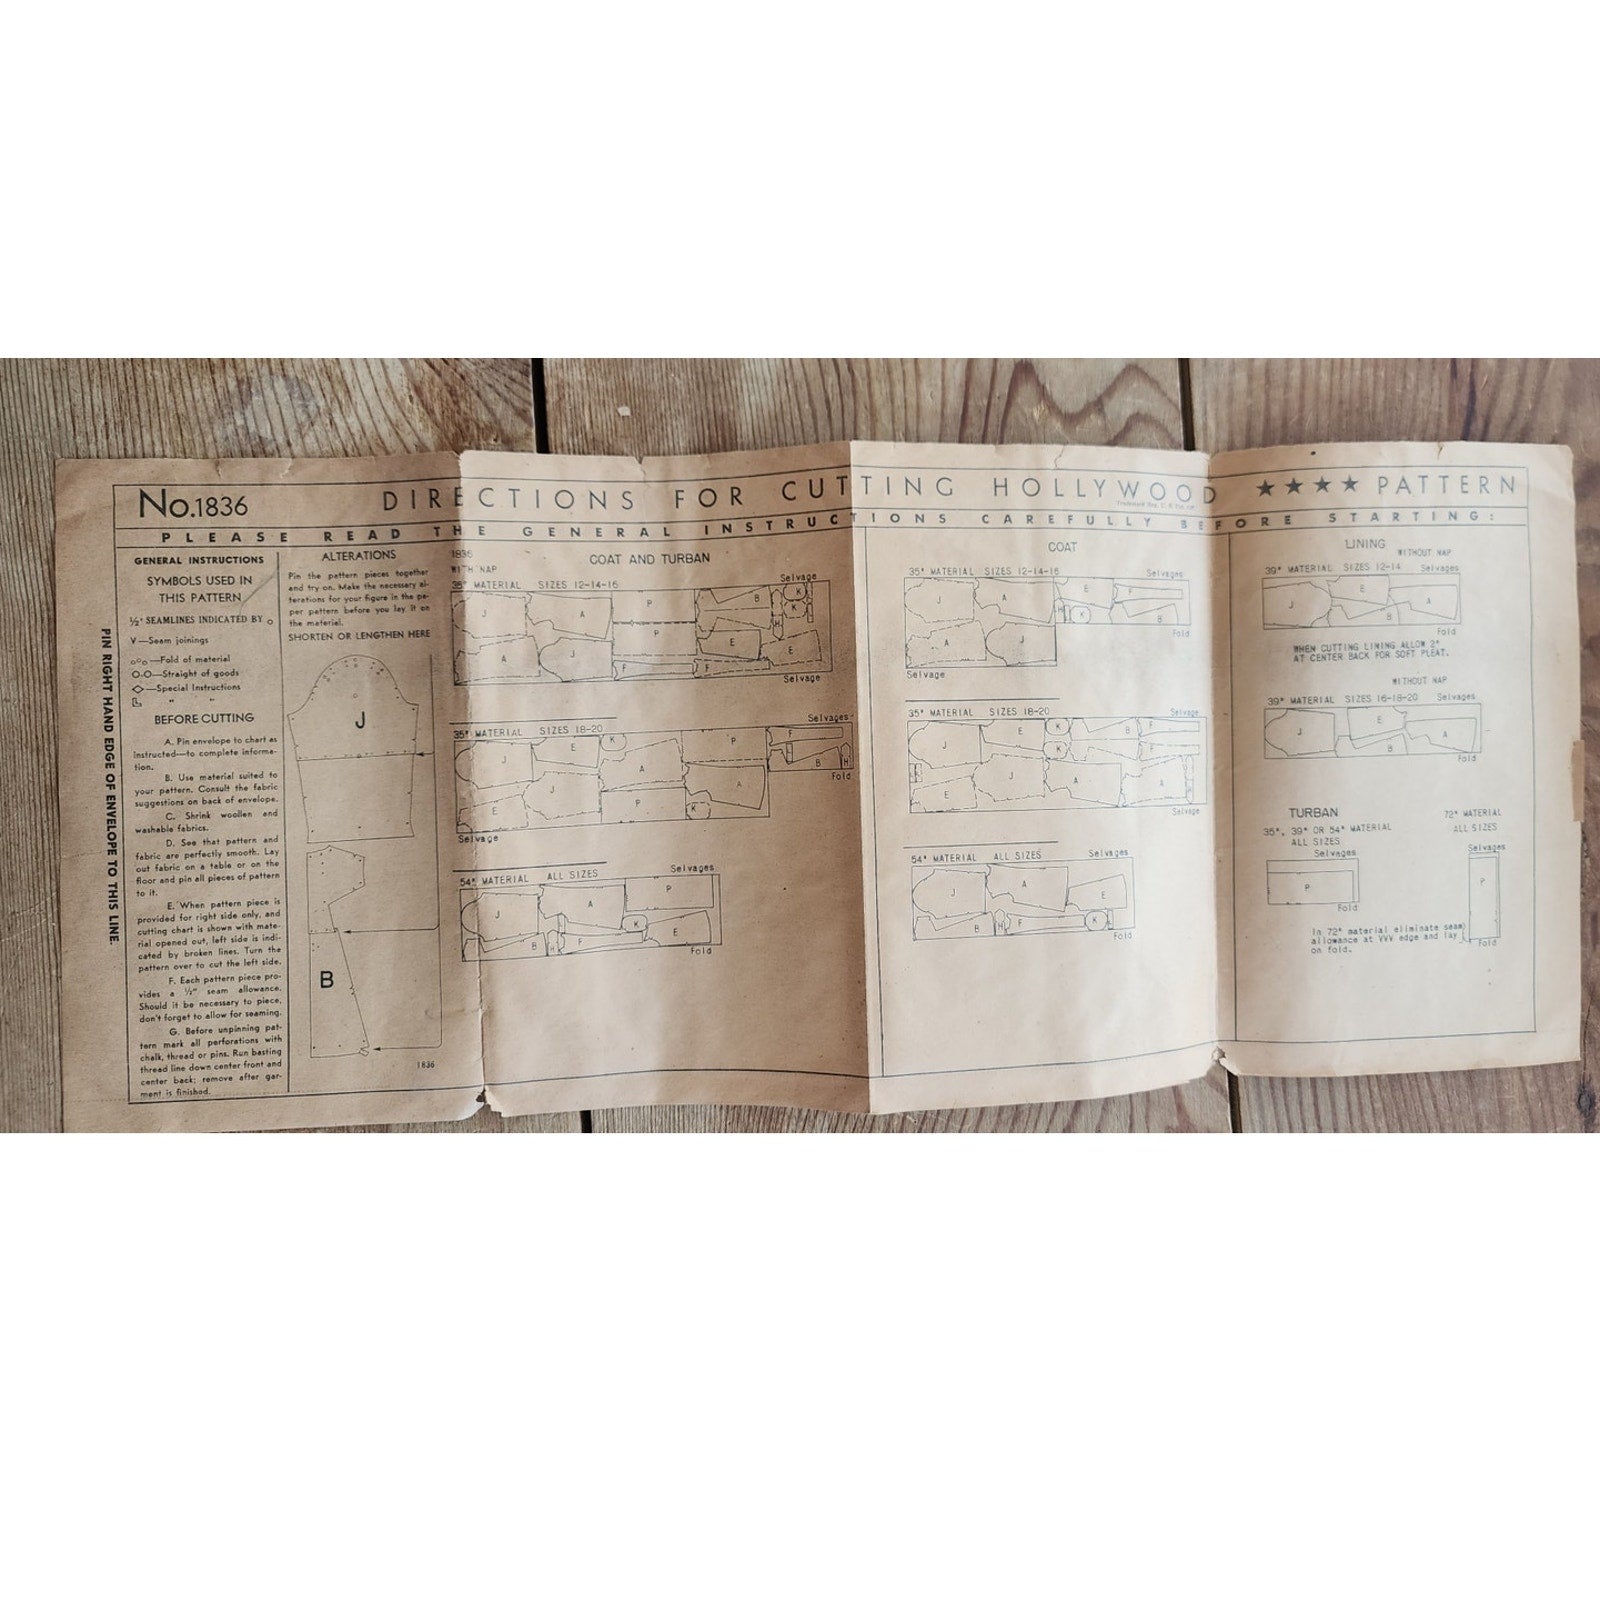 No.1836
DIRECTIONS FOR CUTTING HOLLYWOOD ★★★★ PATTERN
PLEASE READ THE GENERAL INSTRUCTIONS CAREFULLY BEFORE STARTING:
PIN RIGHT HAND EDGE OF ENVELOPE TO THIS LINE.
GENERAL INSTRUCTIONS
SYMBOLS USED IN
THIS PATTERN
½" SEAMLINES INDICATED BY o
V—Seam joinings
o°o—Fold of material
O-O—Straight of goods
◇—Special Instructions
" "
BEFORE CUTTING
A. Pin envelope to chart as
instructed—to complete informa-
tion.
B. Use material suited to
your pattern. Consult the fabric
suggestions on back of envelope.
C. Shrink woollen and
washable fabrics.
D. See that pattern and
fabric are perfectly smooth. Lay
out fabric on a table or on the
floor and pin all pieces of pattern
to it.
E. When pattern piece is
provided for right side only, and
cutting chart is shown with mate-
rial opened out, left side is indi-
cated by broken lines. Turn the
pattern over to cut the left side.
F. Each pattern piece pro-
vides a ½" seam allowance.
Should it be necessary to piece,
don't forget to allow for seaming.
G. Before unpinning pat-
tern mark all perforations with
chalk, thread or pins. Run basting
thread line down center front and
center back; remove after gar-
ment is finished.
ALTERATIONS
Pin the pattern pieces together
and try on. Make the necessary al-
terations for your figure in the pa-
per pattern before you lay it on
the material.
SHORTEN OR LENGTHEN HERE
J
B
1836
1836
WITH NAP
COAT AND TURBAN
35" MATERIAL SIZES 12-14-16
Selvage
J A P B K K H
A J P F E F E
Selvage
35" MATERIAL SIZES 18-20
Selvages
J E K A P F B H
E J P K A
Fold
Selvage
54" MATERIAL ALL SIZES
Selvages
J A P
B H F K E
Fold
COAT
35" MATERIAL SIZES 12-14-16
Selvages
J A H K E F B
A J
Fold
Selvage
35" MATERIAL SIZES 18-20
Selvage
J E K K B F F
H E J A A
Selvage
54" MATERIAL ALL SIZES
Selvages
J A E
B H F K
Fold
LINING
WITHOUT NAP
39" MATERIAL SIZES 12-14 Selvages
J E B A
Fold
WHEN CUTTING LINING ALLOW 2"
AT CENTER BACK FOR SOFT PLEAT.
WITHOUT NAP
39" MATERIAL SIZES 16-18-20 Selvages
J E B A
Fold
TURBAN
35", 39" OR 54" MATERIAL
ALL SIZES
Selvages
P
Fold
72" MATERIAL
ALL SIZES
Selvages
P
Fold
In 72" material eliminate seam
allowance at VVV edge and lay
on fold.